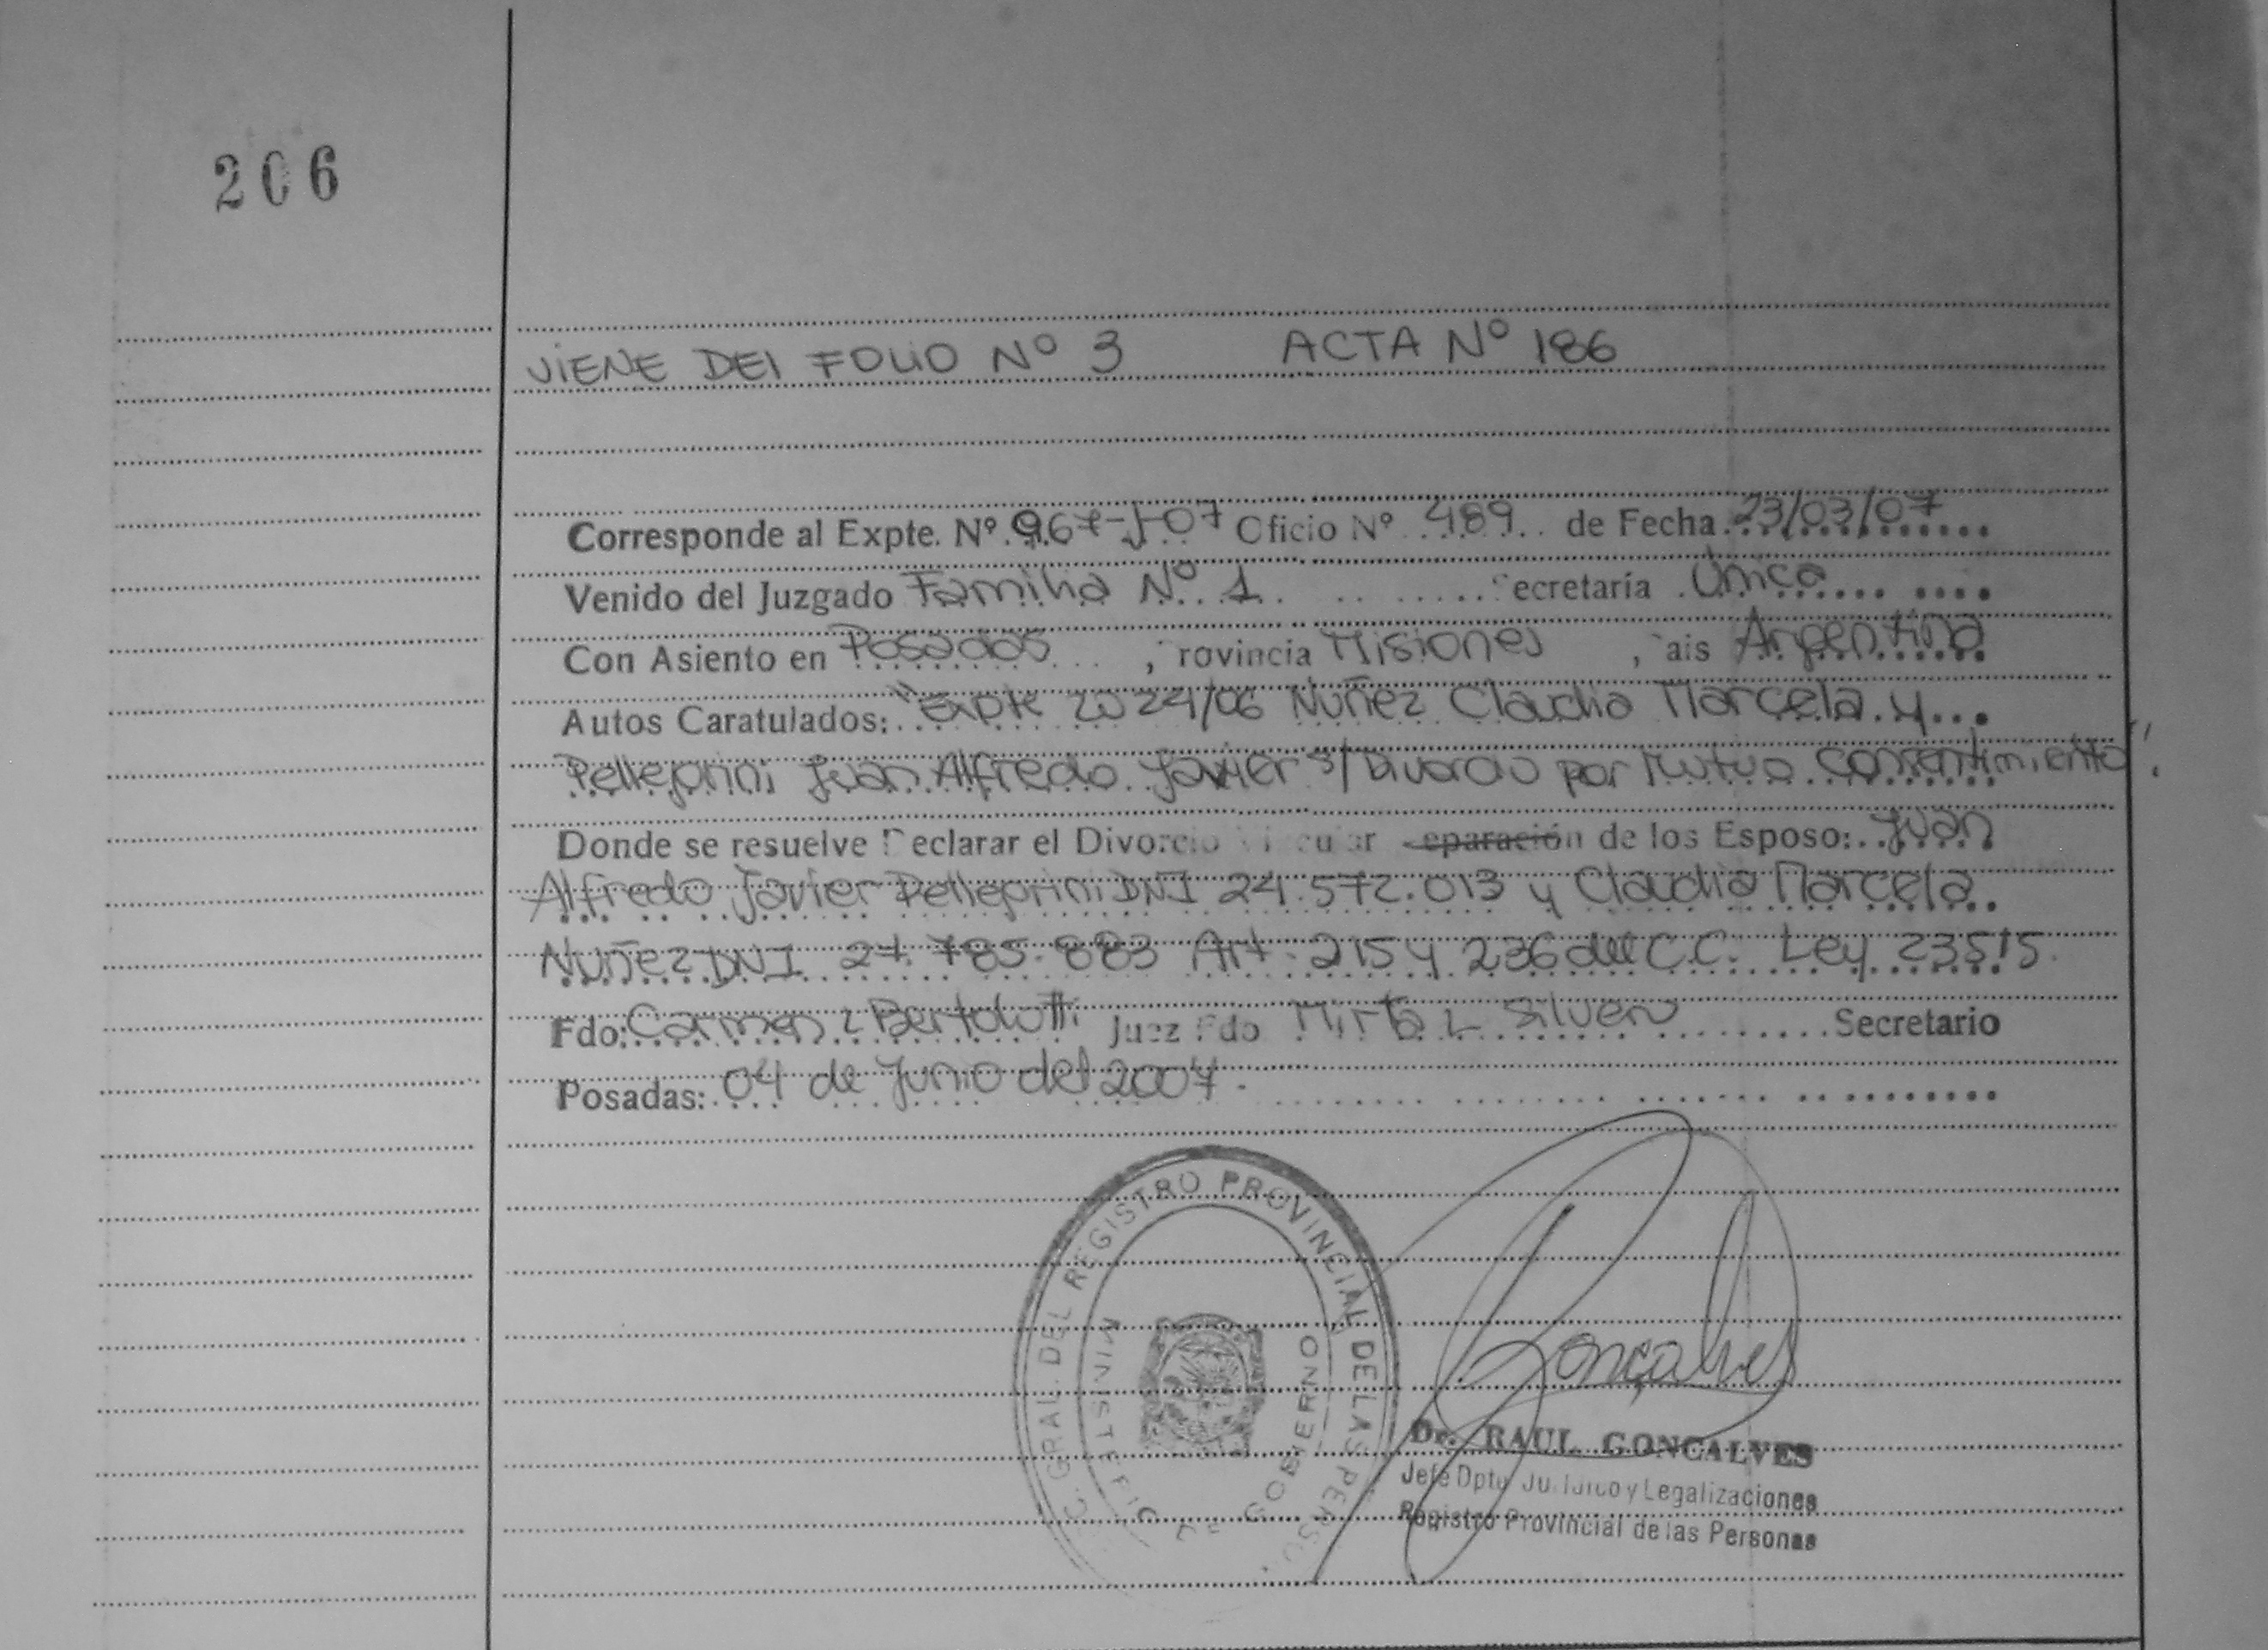 206
VIENE DEL FOLIO Nº 3 ACTA Nº 186
Corresponde al Expte. Nº 967-J-07 Oficio Nº 489 de Fecha 23/03/07
Venido del Juzgado Familia Nº 1 ecretaría Única
Con Asiento en Posadas, rovincia Misiones, ais Argentina
Autos Caratulados: "Expte 2024/06 Nuñez Claudia Marcela y
Pellegrini Juan Alfredo Javier s/ Divorcio por Mutuo Consentimiento"
Donde se resuelve eclarar el Divorcio eparación de los Esposo: Juan
Alfredo Javier Pellegrini DNI 24.572.013 y Claudia Marcela
Nuñez DNI 27.785.883 Art. 215 y 236 del C.C. Ley 23515.
Fdo: Carmen Bertolotti Juez Fdo Mirta L Silvero Secretario
Posadas: 04 de Junio del 2007.
GRAL. DEL REGISTRO PROVINCIAL DE LAS
GOBIERNO
Gonçalves
Dr. RAUL GONCALVES
Jefe Dpto Jurídico y Legalizaciones
Registro Provincial de las Personas